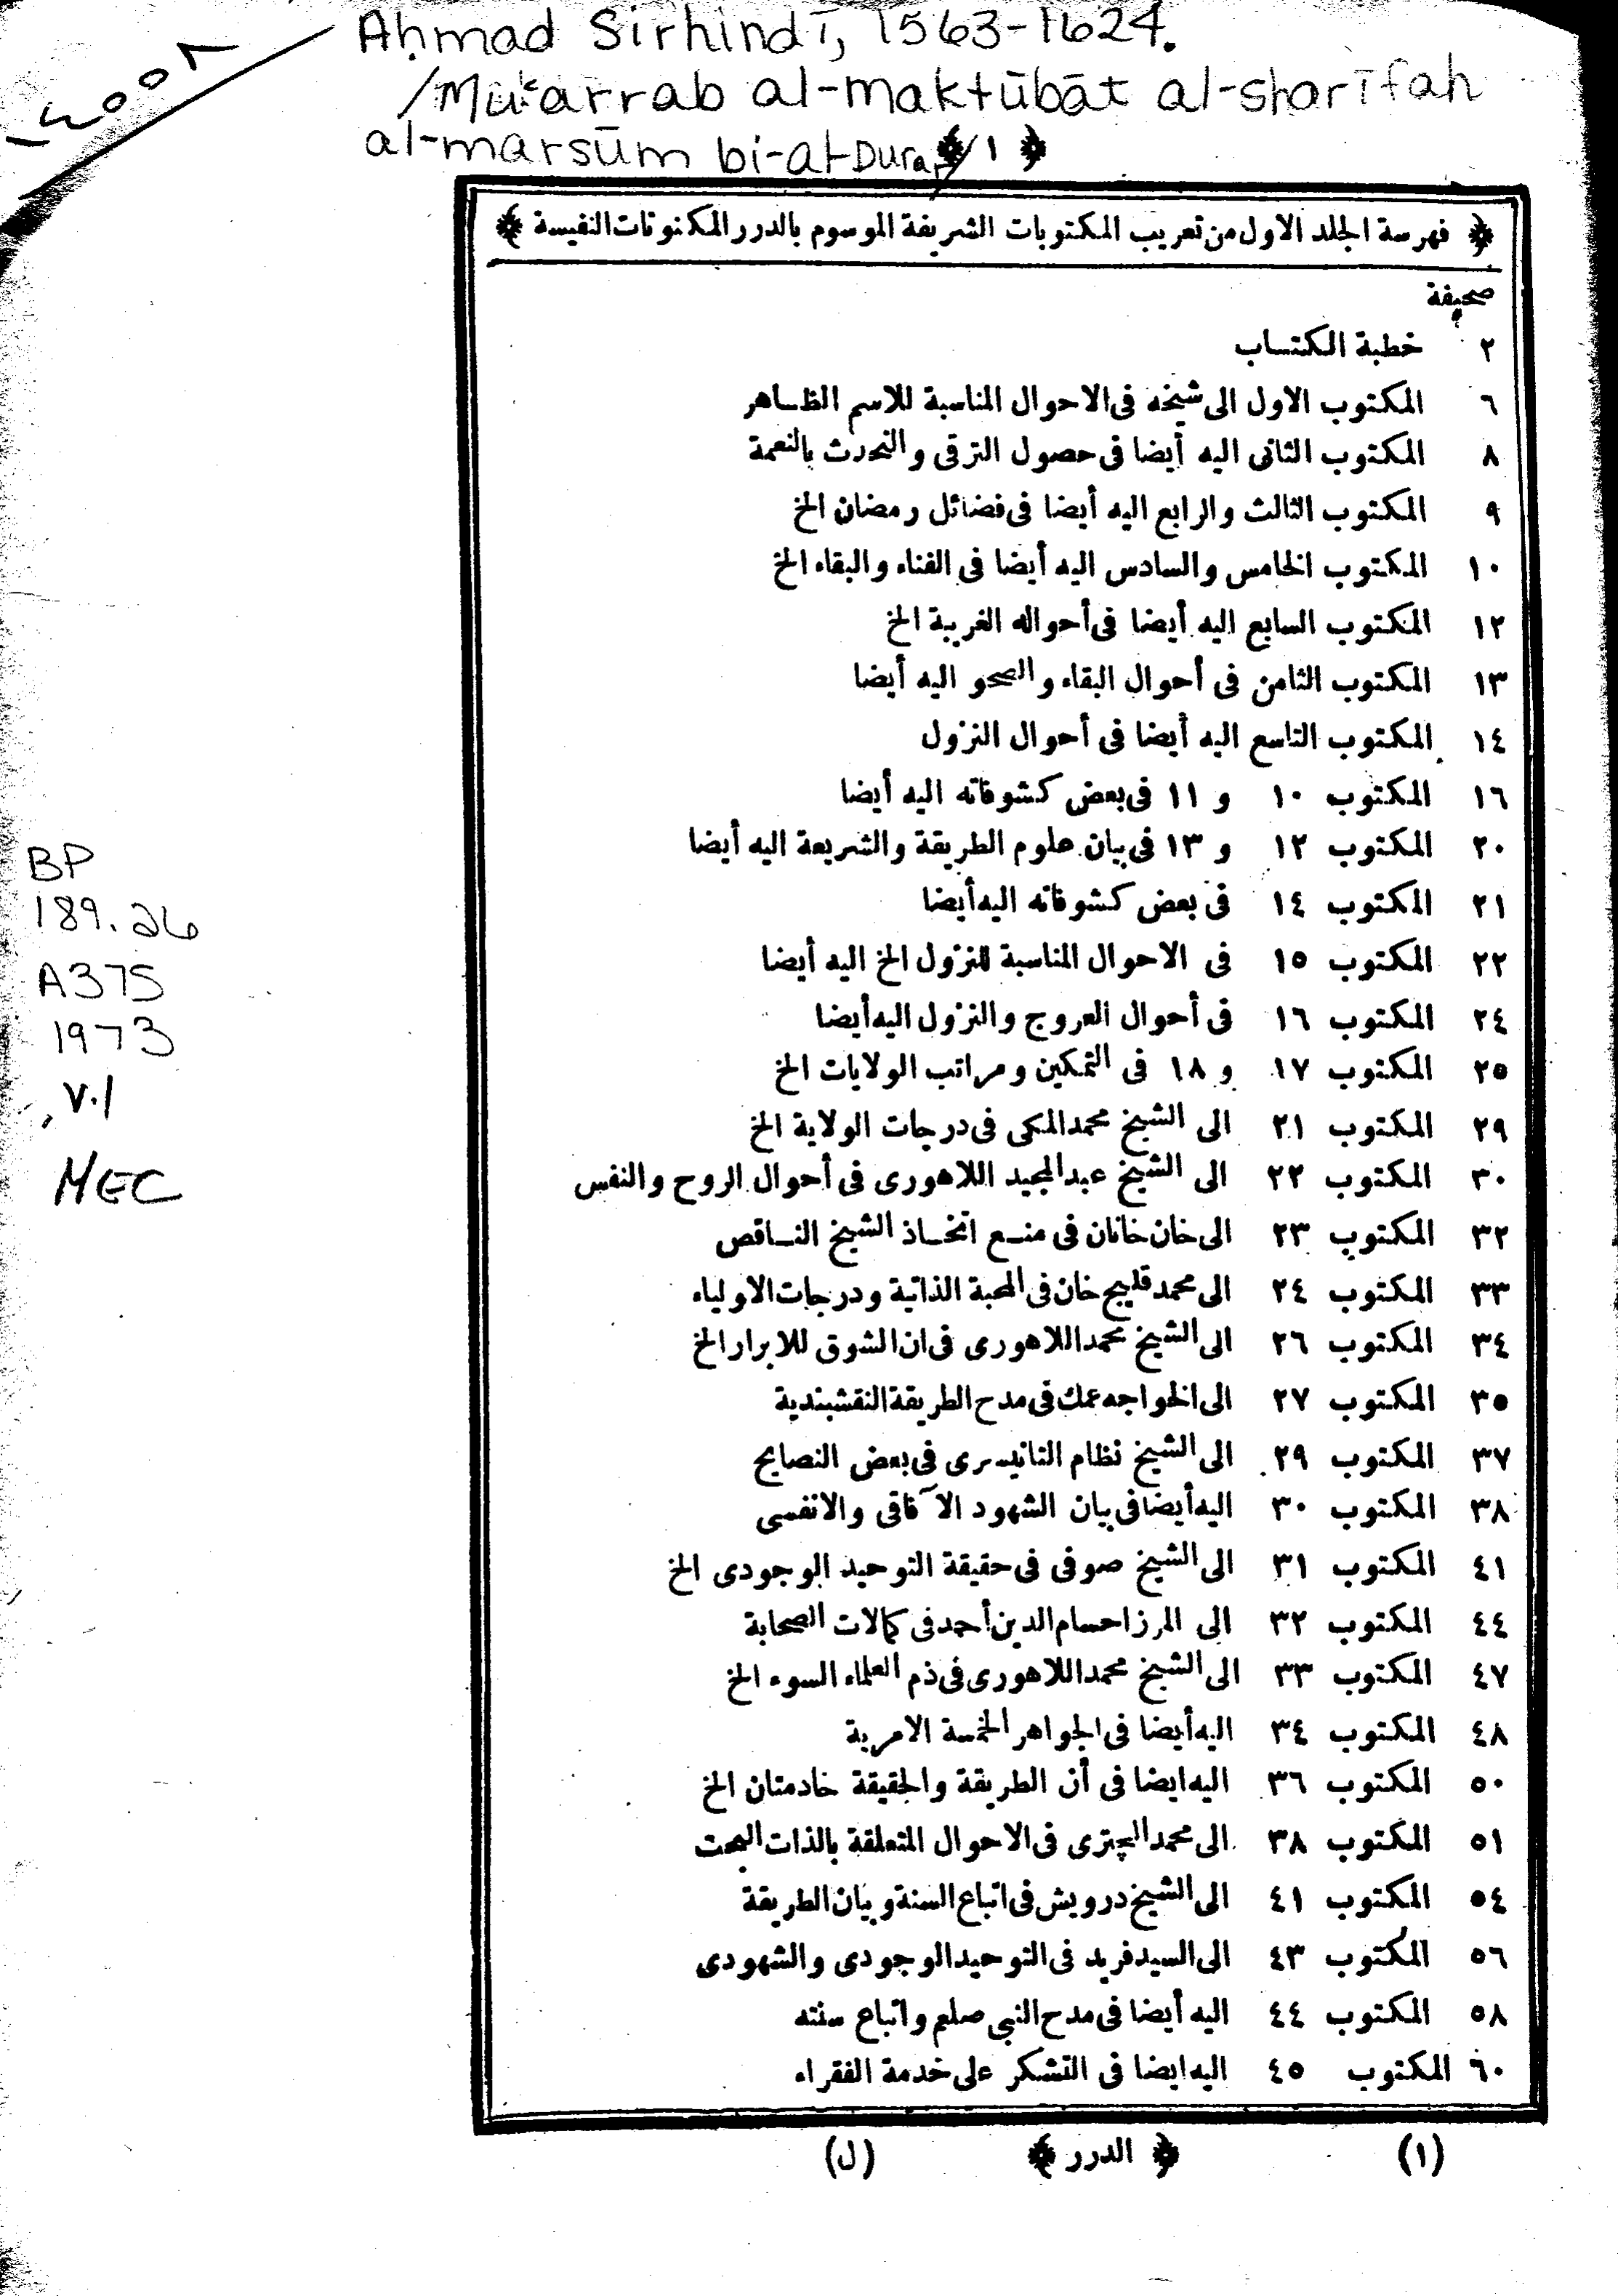 Aḥmad Sirhindī, 1563-1624.
/Muʿarrab al-maktūbāt al-sharīfah
al-marsūm bi-al-Durar/
﴿ ١ ﴾
﴿ فهرسة الجلد الاول من تعريب المكتوبات الشريفة الموسوم بالدرر المكنونات النفيسة ﴾
صحيفة
٢ خطبة الكتاب
٦ المكتوب الاول الى شيخه فى الاحوال المناسبة للاسم الظاهر
٨ المكتوب الثانى اليه أيضا فى حصول الترقى والتحدث بالنعمة
٩ المكتوب الثالث والرابع اليه أيضا فى فضائل رمضان الخ
١٠ المكتوب الخامس والسادس اليه أيضا فى الفناء والبقاء الخ
١٢ المكتوب السابع اليه أيضا فى أحواله الغريبة الخ
١٣ المكتوب الثامن فى أحوال البقاء والصحو اليه أيضا
١٤ المكتوب التاسع اليه أيضا فى أحوال النزول
١٦ المكتوب ١٠ و ١١ فى بعض كشوفاته اليه أيضا
٢٠ المكتوب ١٢ و ١٣ فى بيان علوم الطريقة والشريعة اليه أيضا
٢١ المكتوب ١٤ فى بعض كشوفاته اليه أيضا
٢٢ المكتوب ١٥ فى الاحوال المناسبة للنزول الخ اليه أيضا
٢٤ المكتوب ١٦ فى أحوال العروج والنزول اليه أيضا
٢٥ المكتوب ١٧ و ١٨ فى التمكين ومراتب الولايات الخ
٢٩ المكتوب ٢١ الى الشيخ محمد المكى فى درجات الولاية الخ
٣٠ المكتوب ٢٢ الى الشيخ عبد المجيد اللاهورى فى أحوال الروح والنفس
٣٢ المكتوب ٢٣ الى خان خانان فى منع اتخاذ الشيخ الناقص
٣٣ المكتوب ٢٤ الى محمد قليج خان فى المحبة الذاتية ودرجات الاولياء
٣٤ المكتوب ٢٦ الى الشيخ محمد اللاهورى فى ان الشوق للابرار الخ
٣٥ المكتوب ٢٧ الى الخواجه عمك فى مدح الطريقة النقشبندية
٣٧ المكتوب ٢٩ الى الشيخ نظام التانيسرى فى بعض النصايح
٣٨ المكتوب ٣٠ اليه أيضا فى بيان الشهود الآفاقى والانفسى
٤١ المكتوب ٣١ الى الشيخ صوفى فى حقيقة التوحيد الوجودى الخ
٤٤ المكتوب ٣٢ الى المرزا حسام الدين أحمد فى كمالات الصحابة
٤٧ المكتوب ٣٣ الى الشيخ محمد اللاهورى فى ذم العلماء السوء الخ
٤٨ المكتوب ٣٤ اليه أيضا فى الجواهر الخمسة الامرية
٥٠ المكتوب ٣٦ اليه ايضا فى أن الطريقة والحقيقة خادمتان الخ
٥١ المكتوب ٣٨ الى محمد الچترى فى الاحوال المتعلقة بالذات البحت
٥٤ المكتوب ٤١ الى الشيخ درويش فى اتباع السنة وبيان الطريقة
٥٦ المكتوب ٤٣ الى السيد فريد فى التوحيد الوجودى والشهودى
٥٨ المكتوب ٤٤ اليه أيضا فى مدح النبى صلعم واتباع سنته
٦٠ المكتوب ٤٥ اليه ايضا فى التشكر على خدمة الفقراء
(١) ﴿ الدرر ﴾ (ل)
BP
189.26
A375
1973
v.1
MEC